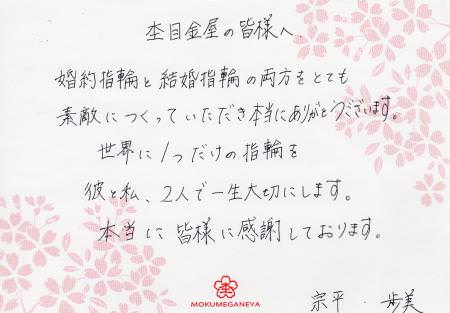 杢目金屋の皆様へ
婚約指輪と結婚指輪の両方をとても
素敵につくっていただき本当にありがとうございます。
世界に1つだけの指輪を
彼と私、2人で一生大切にします。
本当に皆様に感謝しております。
MOKUMEGANEYA
宗平・歩美